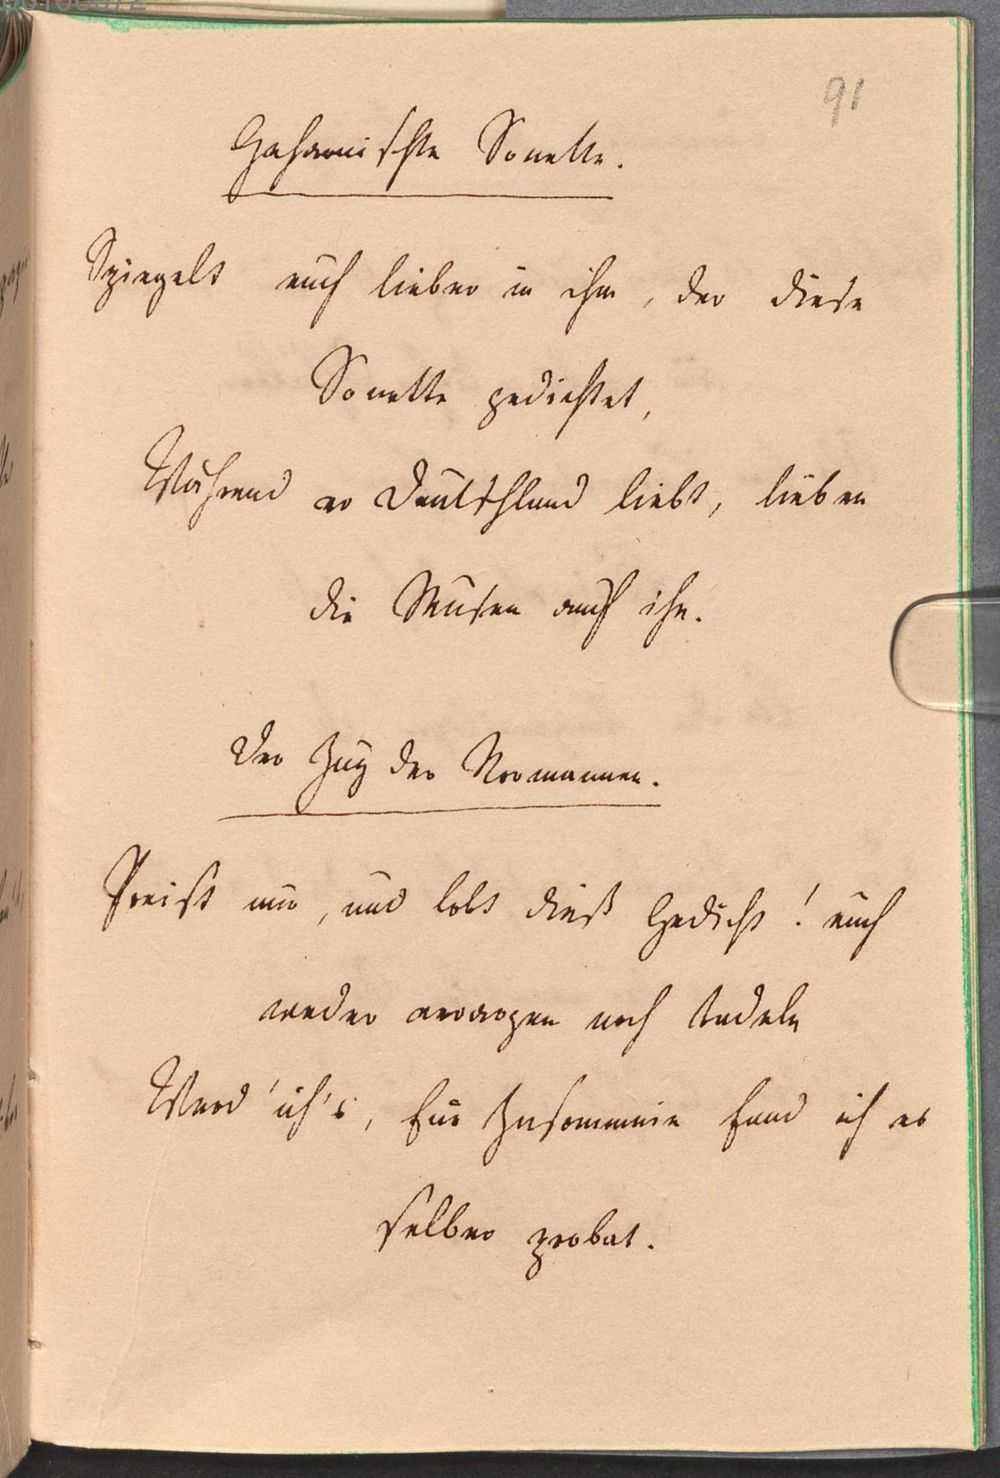 91
Geharnischte Sonette.
Spiegelt euch lieber in ihm, der diese
Sonette gedichtet,
Während er Deutschland liebt, lieben
die Musen auch ihn.
Der Zug der Normannen.
Preist nur, und lobt dieß Gedicht! euch
weder erregen noch tadeln
Werd' ich's, für Insomnie fand ich es
selber probat.